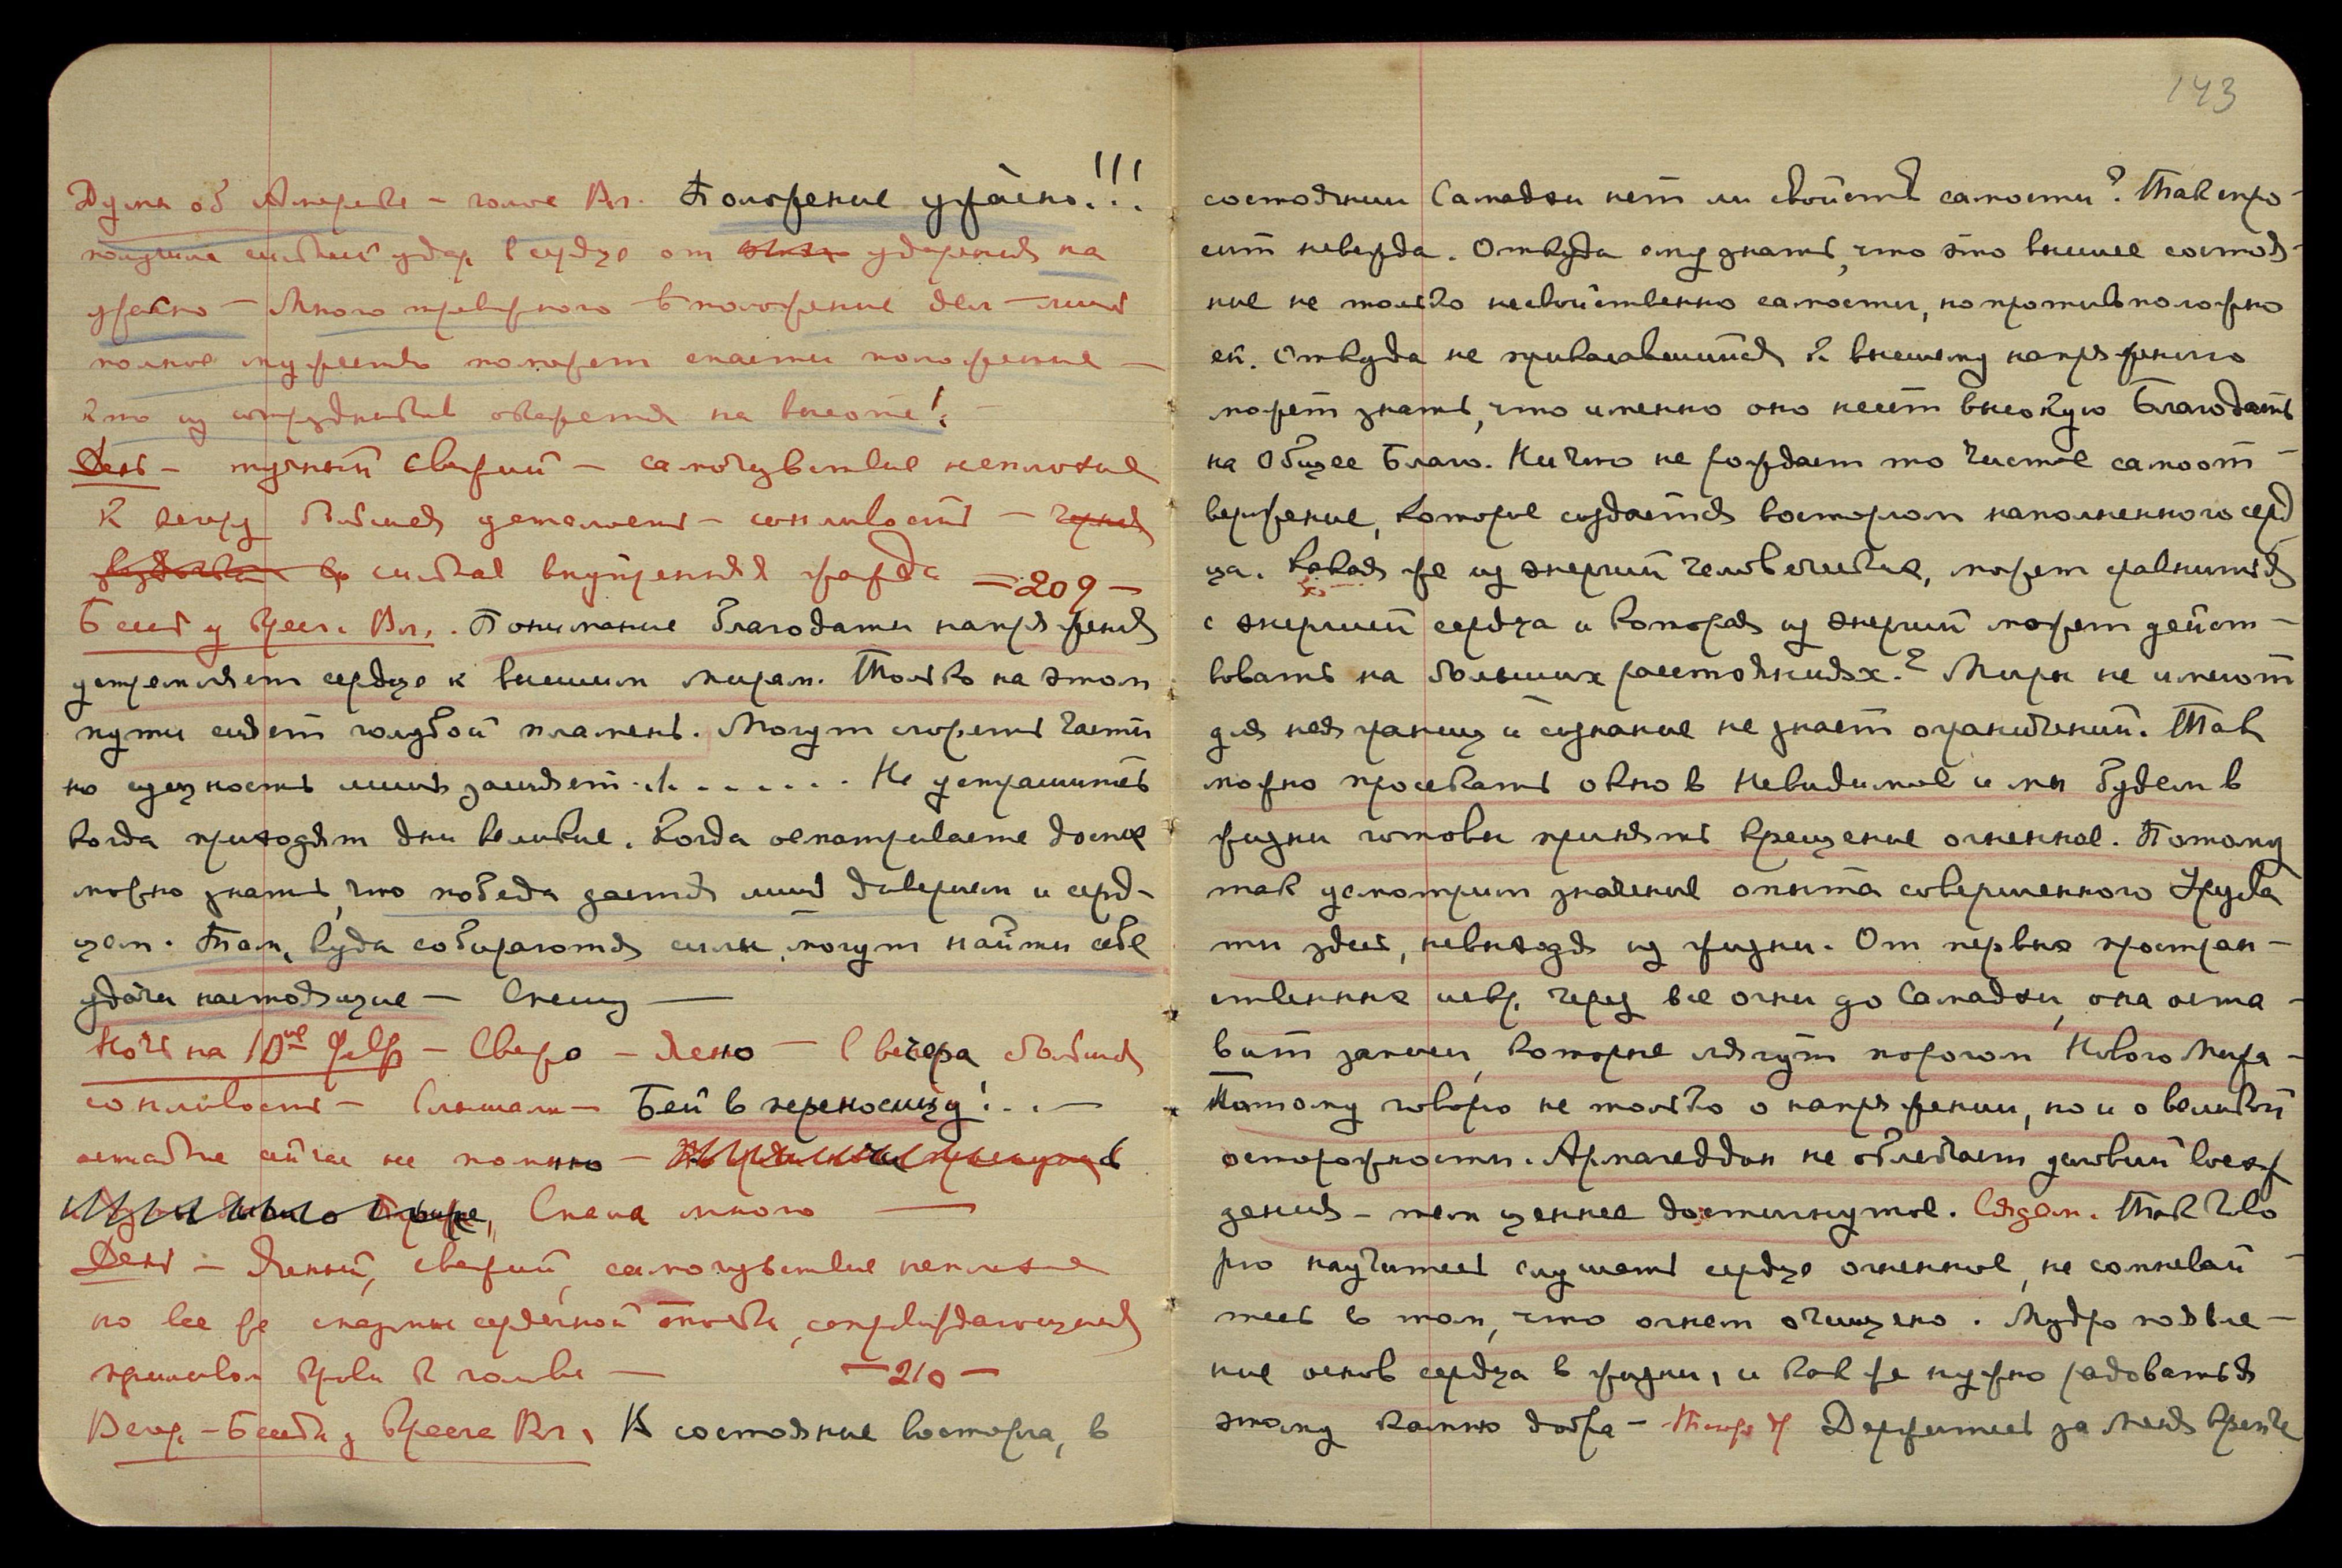 143
Думы об Америке – голос Вл. Положение ужасно!!!
получила сильный удар в сердце от ударения на
ужасно – Много тревожного в положение дел – лишь
полное мужество поможет спасти положение –
кто из сотрудников окажется на высоте!
День – туманный свежий – самочувствие неплохое
К вечеру большая усталость – сонливость –
сильная внутренняя жажда – 209 –
Беседа у Кресла Вл. Понимание благодати напряжения
устремляет сердце к высшим мирам. Только на этом
пути сияет голубой пламень. Могут сгореть части
но сущность лишь засияет. . . . . . . Не устрашитесь
когда приходят дни великие. Когда осматриваете доспех
можно знать, что победа дается лишь доверием и серд-
цем. Там, куда собираются силы, могут найти себе
удачи настоящие – Спешу —
Ночь на 10ое Февр – Свежо – Ясно – С вечера большая
сонливость – Слышала – Бей в переносицу! . . —
остальное сейчас не помню –
Спала много —
День – Ясный, свежий, самочувствие неплохое
но все же спазмы сердечной , сопровождающиеся
приливом крови к голове — – 210 –
Вечер – Беседа у Кресла Вл. В состояние восторга, в
состоянии Самадхи нет ли свойств самости? Так спро-
сит невежда. Откуда ему знать, что это высшее состоя-
ние не только несвойственно самости, но противоположно
ей. Откуда не прикасавшийся к высшему напряжению
может знать, что именно оно несет высокую Благодать
на Общее Благо. Ничто не рождает то чистое самоот-
вержение, которое создается восторгом наполненного серд
ца. Какая же из энергий человеческих, может сравниться
с энергией сердца и которая из энергий может дейст-
вовать на больших расстояниях? Миры не имеют
для нея границ и сознание не знает ограничений. Так
можно просекать окно в Невидимое и мы будем в
жизни готовы принять крещение огненное. Потому
так усмотрим значение опыта совершенного Урусва
ти здесь, невыходя из жизни. От первых простран-
ственных искр, через все огни до Самадхи, она оста-
вит записи, которые лягут порогом Нового Мира –
Потому говорю не только о напряжении, но и о великой
осторожности. Армагеддон не облегчает условий восхож
дения – тем ценнее достигнутое. Сядем. Так гово
рю научитесь слушать сердце огненное, не сомневай-
тесь в том, что огнем очищено. Мудро появле-
ние основ сердца в жизни, и как же нужно радоваться
этому камню добра – Держитесь за Меня крепче